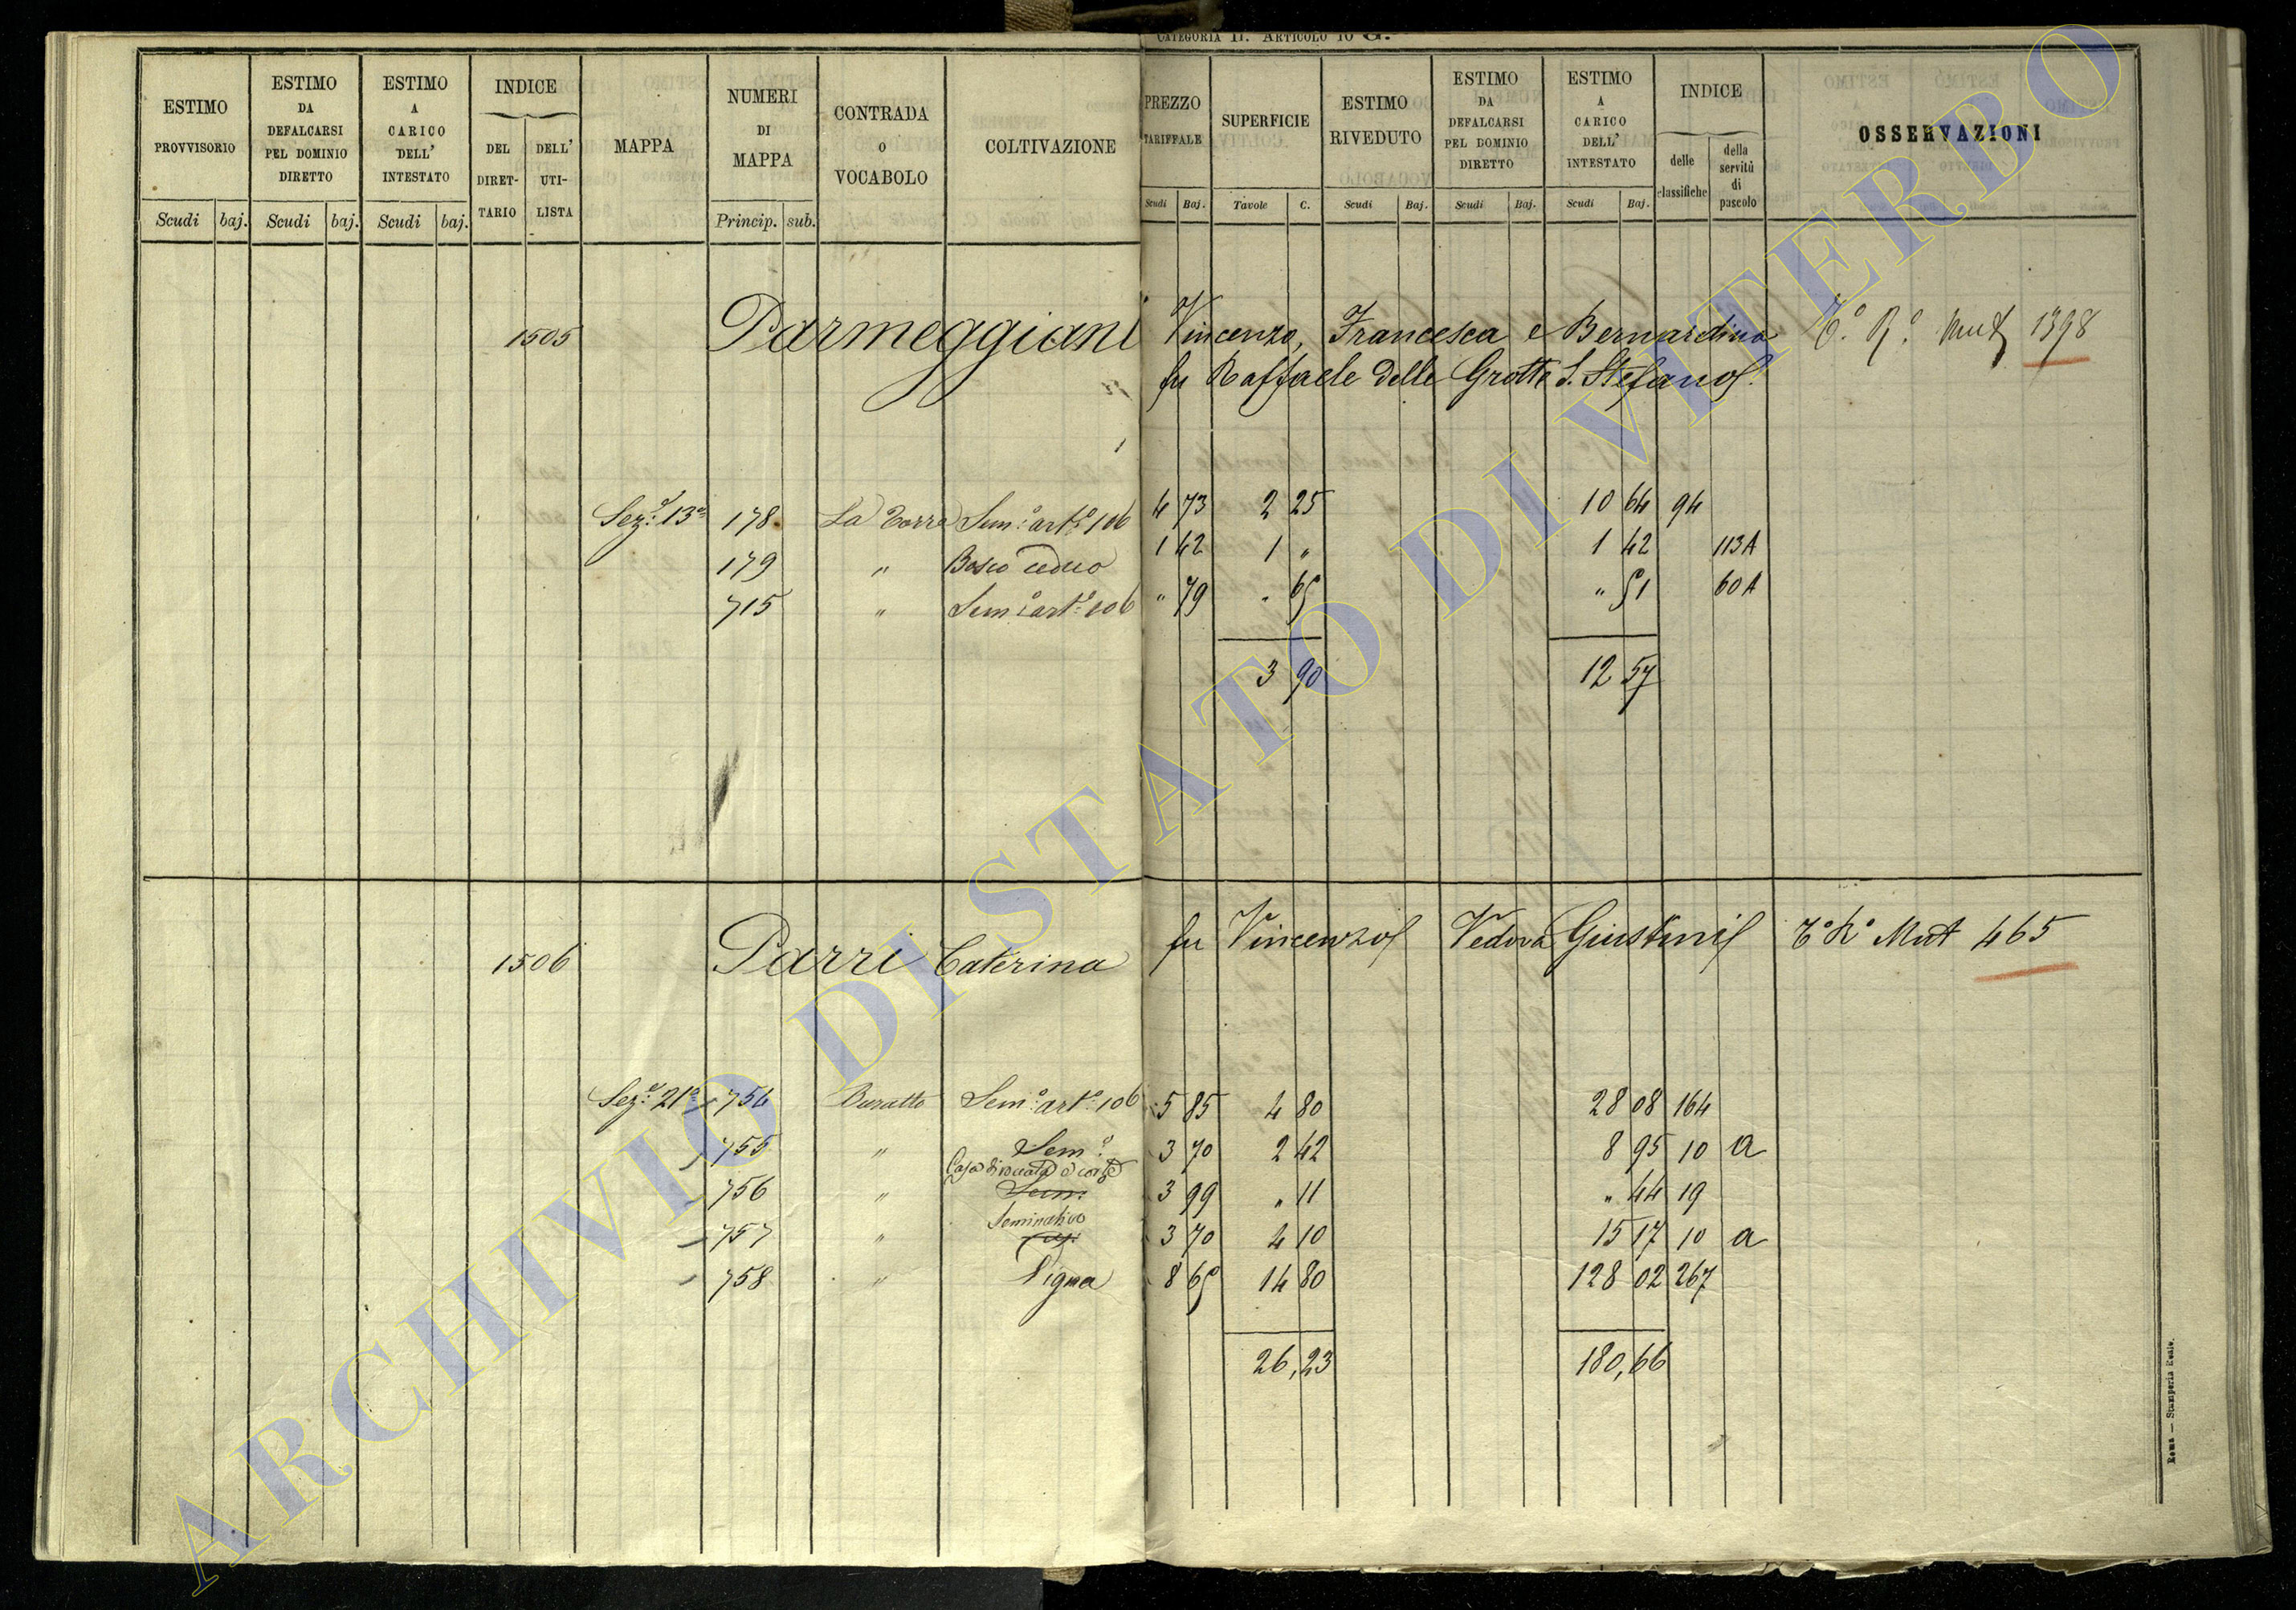 CATEGORIA II. ARTICOLO 10 G.
ESTIMO PROVVISORIO
Scudi baj.
ESTIMO DA DEFALCARSI PEL DOMINIO DIRETTO
Scudi baj.
ESTIMO A CARICO DELL' INTESTATO
Scudi baj.
INDICE
DEL DIRET- TARIO
DELL' UTI- LISTA
MAPPA
NUMERI DI MAPPA
Princip. sub.
CONTRADA O VOCABOLO
COLTIVAZIONE
PREZZO TARIFFALE
Scudi Baj.
SUPERFICIE
Tavole C.
ESTIMO RIVEDUTO
Scudi Baj.
ESTIMO DA DEFALCARSI PEL DOMINIO DIRETTO
Scudi Baj.
ESTIMO A CARICO DELL' INTESTATO
Scudi Baj.
INDICE
delle classifiche
della servitù di pascolo
OSSERVAZIONI
1505 Parmeggiani Vincenzo, Francesca e Bernardino T.º R.º Mut 1398
fu Raffaele delle Grotte S. Stefano
Sez.e 13a 178 La Torre Sem.o art.o 106 4 73 2 25 10 64 94
179 " Bosco ceduo 1 42 1 " 1 42 113A
715 " Sem.o art.o 106 " 79 " 65 " 51 60A
3 90 12 57
1506 Parri Caterina fu Vincenzo Vedova Giustini T.º R.º Mut 465
Sez.e 21a 754 Buratto Sem.o art.o 106 5 85 4 80 28 08 164
755 " Sem.o 3 70 2 42 8 95 10 a
Casa diroccata e corte
756 " Sem. 3 99 " 11 " 44 19
Seminativo
757 " 3 70 4 10 15 17 10 a
758 " Vigna 8 65 14 80 128 02 267
26,23 180,66
Roma — Stamperia Reale.
ARCHIVIO DI STATO DI VITERBO